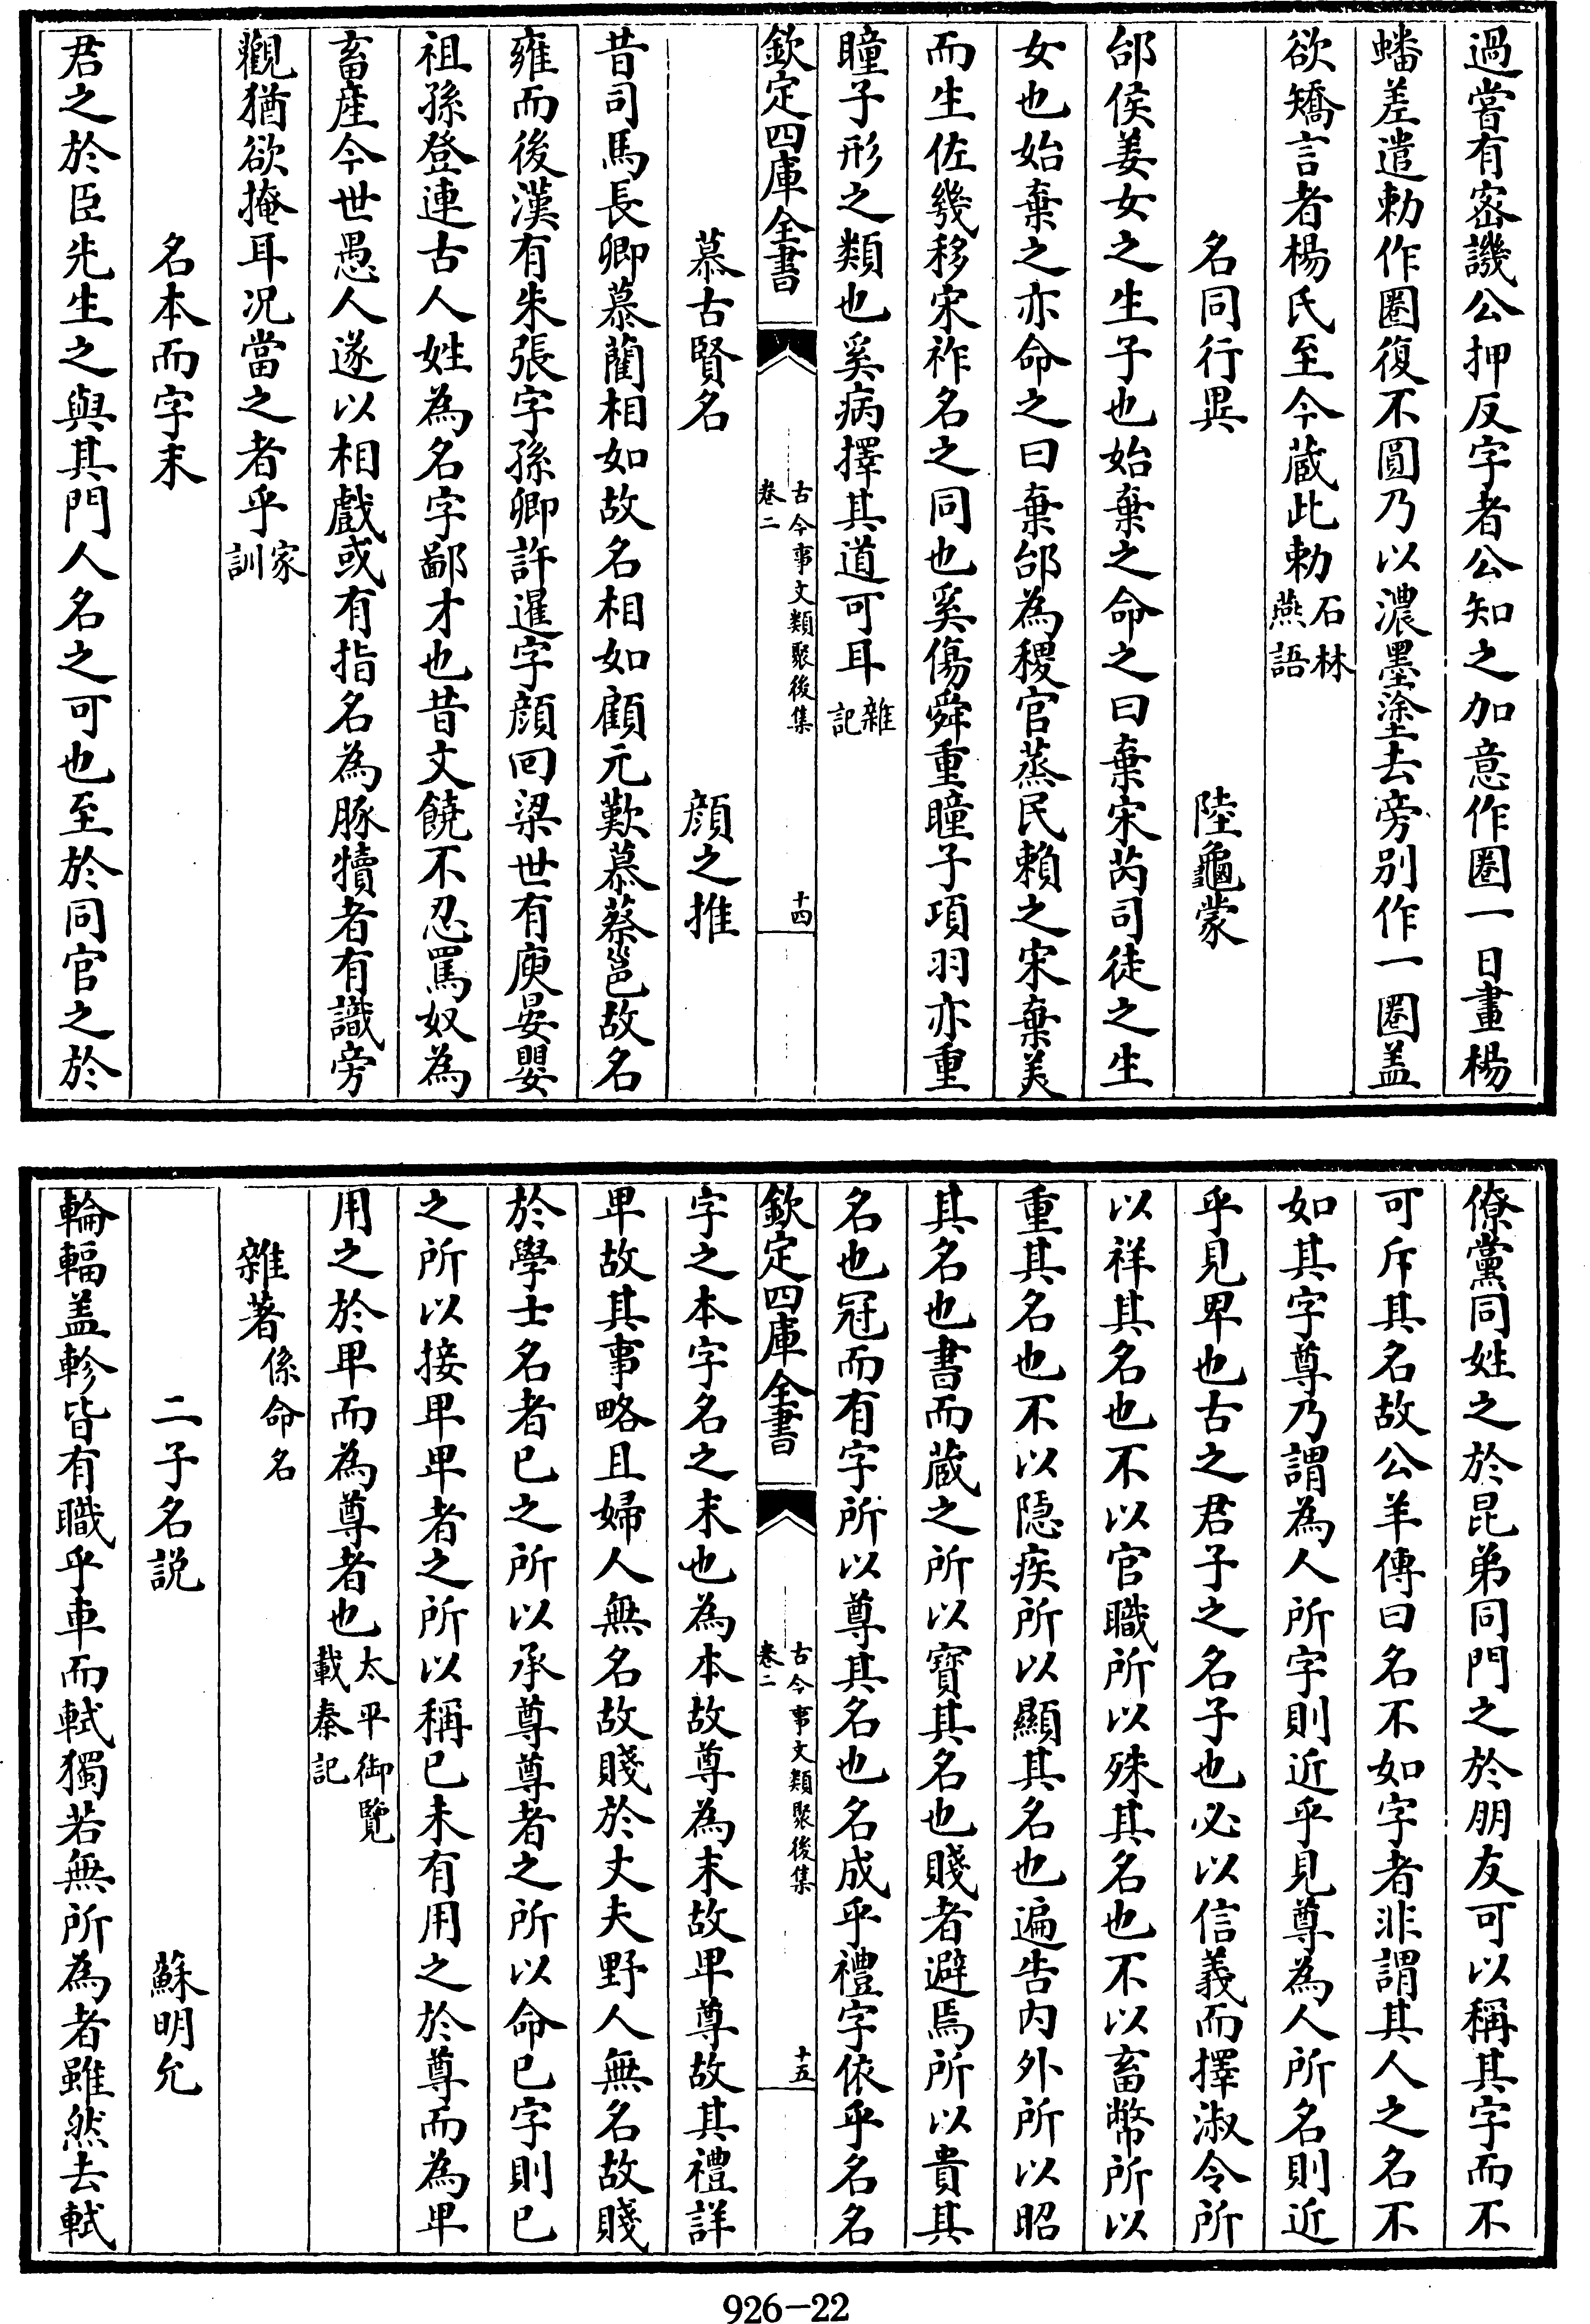 過當有密譏公押反字者公知之加意作圏一日畫楊
蟠差遣勅作圏復不圓乃以濃墨塗去旁别作一圏盖
欲矯言者楊氏至今蔵此勅石林燕語
名同行異 陸龜蒙
邰侯姜女之生子也始棄之命之曰棄宋芮司徒之生
女也始棄之亦命之曰棄邰為稷官蒸民賴之宋棄美
而生佐幾移宋祚名之同也奚傷舜重瞳子項羽亦重
瞳子形之類也奚病擇其道可耳雜記
欽定四庫全書 古今事文類聚後集卷二 十四
慕古賢名 顔之推
昔司馬長卿慕藺相如故名相如顧元歎慕蔡邕故名
雍而後漢有朱張字孫卿許暹字顔回梁世有庾晏嬰
祖孫登連古人姓為名字鄙才也昔文饒不忍罵奴為
畜産今世愚人遂以相戲或有指名為豚犢者有識旁
觀猶欲掩耳况當之者乎家訓
名本而字末
君之於臣先生之與其門人名之可也至於同官之於
僚黨同姓之於昆弟同門之於朋友可以稱其字而不
可斥其名故公羊傳曰名不如字者非謂其人之名不
如其字尊乃謂為人所字則近乎見尊為人所名則近
乎見卑也古之君子之名子也必以信義而擇淑令所
以祥其名也不以官職所以殊其名也不以畜幣所以
重其名也不以隠疾所以顯其名也遍告内外所以昭
其名也書而蔵之所以寳其名也賤者避焉所以貴其
名也冠而有字所以尊其名也名成乎禮字依乎名名
欽定四庫全書 古今事文類聚後集卷二 十五
字之本字名之末也為本故尊為末故卑尊故其禮詳
卑故其事略且婦人無名故賤於丈夫野人無名故賤
於學士名者已之所以承尊尊者之所以命已字則已
之所以接卑卑者之所以稱已未有用之於尊而為卑
用之於卑而為尊者也太平御覽載秦記
雜著係命名
二子名説 蘇明允
輪輻盖軫皆有職乎車而軾獨若無所為者雖然去軾
926-22